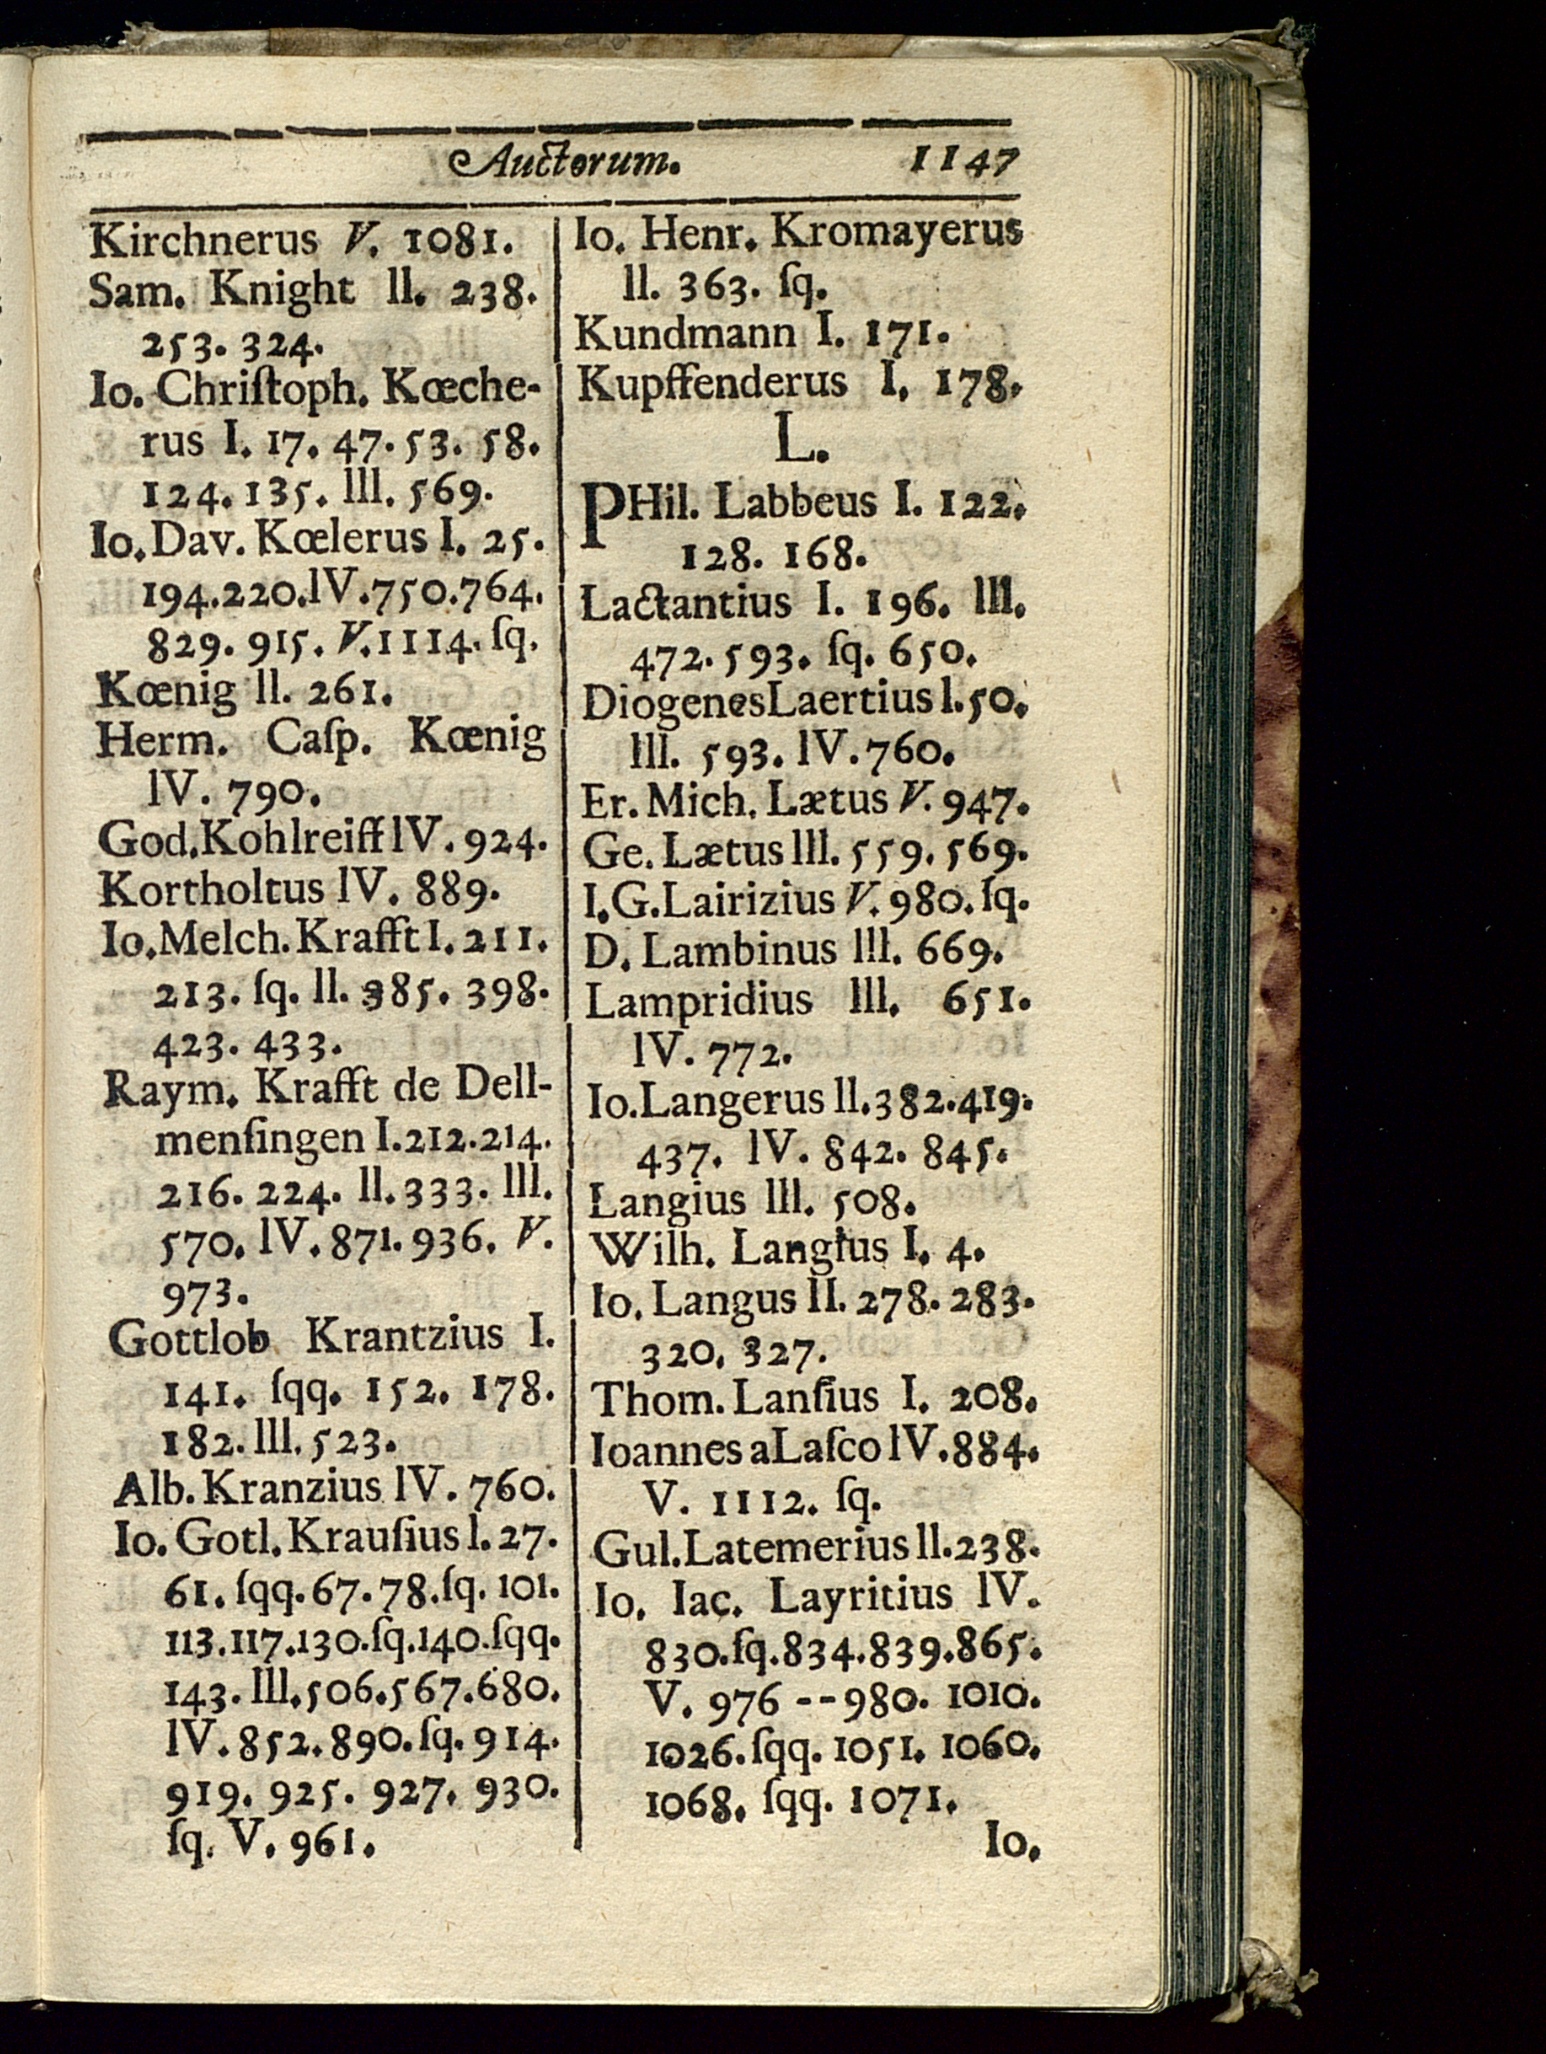 Auctorum. 1147
Kirchnerus V. 1081.
Sam. Knight ll. 238.
253. 324.
Io. Chriſtoph. Kœche-
rus I. 17. 47. 53. 58.
124. 135. lll. 569.
Io. Dav. Kœlerus I. 25.
194.220.lV.750.764.
829. 915. V.1114. ſq.
Kœnig ll. 261.
Herm. Caſp. Kœnig
lV. 790.
God.Kohlreiff lV. 924.
Kortholtus lV. 889.
Io.Melch. Krafft I. 211.
213. ſq. ll. 385. 398.
423. 433.
Raym. Krafft de Dell-
menſingen I.212.214.
216. 224. ll. 333. lll.
570. lV. 871. 936. V.
973.
Gottlob Krantzius I.
141. ſqq. 152. 178.
182. lll. 523.
Alb. Kranzius lV. 760.
Io. Gotl. Krauſius l. 27.
61. ſqq. 67. 78. ſq. 101.
113.117.130.ſq.140.ſqq.
143. lll. 506.567.680.
lV. 852. 890. ſq. 914.
919. 925. 927. 930.
ſq. V. 961.
Io. Henr. Kromayerus
ll. 363. ſq.
Kundmann I. 171.
Kupffenderus I. 178.
L.
PHil. Labbeus I. 122.
128. 168.
Lactantius I. 196. lll.
472. 593. ſq. 650.
DiogenesLaertius l.50.
lll. 593. lV. 760.
Er. Mich. Lætus V. 947.
Ge. Lætus lll. 559. 569.
I.G.Lairizius V. 980. ſq.
D. Lambinus lll. 669.
Lampridius lll. 651.
lV. 772.
Io.Langerus ll.382.419.
437. lV. 842. 845.
Langius lll. 508.
Wilh. Langius I. 4.
Io. Langus II. 278. 283.
320. 327.
Thom. Lanſius I. 208.
Ioannes aLaſco lV.884.
V. 1112. ſq.
Gul.Latemerius ll.238.
Io. Iac. Layritius lV.
830.ſq.834.839.865.
V. 976 -- 980. 1010.
1026.ſqq. 1051. 1060.
1068. ſqq. 1071.
Io.